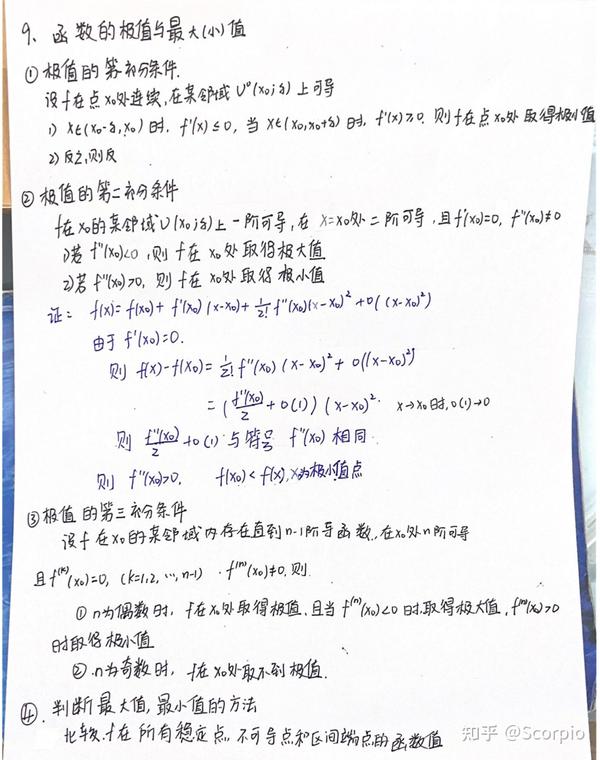 9、函数的极值与最大(小)值
① 极值的第一充分条件.
设f在点x₀处连续,在某邻域 U°(x₀;δ) 上可导
1) x∈(x₀-δ,x₀) 时, f'(x)≤0, 当 x∈(x₀,x₀+δ) 时, f'(x)≥0. 则f在点x₀处取得极小值
2) 反之,则反
② 极值的第二充分条件
f在x₀的某邻域U(x₀;δ)上一阶可导,在 x=x₀处二阶可导,且f'(x₀)=0, f''(x₀)≠0
1)若 f''(x₀)<0,则 f 在 x₀ 处取得极大值
2)若 f''(x₀)>0, 则 f在x₀处取得 极小值
证: f(x)=f(x₀)+f'(x₀)(x-x₀)+\frac{1}{2!}f''(x₀)(x-x₀)²+o((x-x₀)²)
由于 f'(x₀)=0.
则 f(x)-f(x₀)=\frac{1}{2!}f''(x₀)(x-x₀)²+o((x-x₀)²)
=(\frac{f''(x₀)}{2}+o(1))(x-x₀)². x→x₀时,o(1)→0
则 \frac{f''(x₀)}{2}+o(1) 与符号 f''(x₀) 相同
则 f''(x₀)>0, f(x₀)<f(x),x₀为极小值点
③ 极值的第三充分条件
设f在x₀的某邻域内存在直到n-1阶导函数,在x₀处n阶可导
且f⁽ᵏ⁾(x₀)=0, (k=1,2,…,n-1) . f⁽ⁿ⁾(x₀)≠0,则.
① n为偶数时, f在x₀处取得极值,且当 f⁽ⁿ⁾(x₀)<0时,取得极大值, f⁽ⁿ⁾(x₀)>0
时取得极小值
② n为奇数时, f在x₀处取不到极值.
④. 判断最大值,最小值的方法
比较f在所有稳定点,不可导点和区间端点的函数值
知乎 @Scorpio